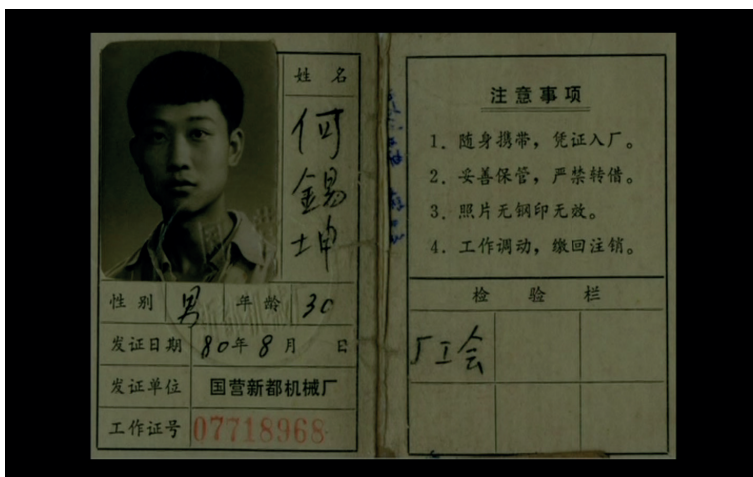 姓名
何錫坤
性别 男 年龄 30
发证日期 80年8月 日
发证单位 国营新都机械厂
工作证号 07718968
注意事项
1. 随身携带，凭证入厂。
2. 妥善保管，严禁转借。
3. 照片无钢印无效。
4. 工作调动，缴回注销。
检验栏
厂工会